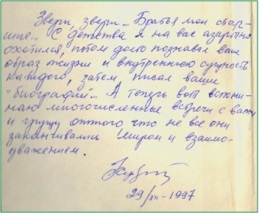 Звери, звери... Братья мои мень
шие... С детства я на вас азартно
охотился, потом долго познавал ваш
образ жизни и внутреннюю сущность
каждого, затем, писал ваши
"биографии"... А теперь вот вспоми-
наю многочисленные встречи с вами
и грущу оттого что не все они
заканчивались миром и взаимо-
уважением.
29/XII-1997